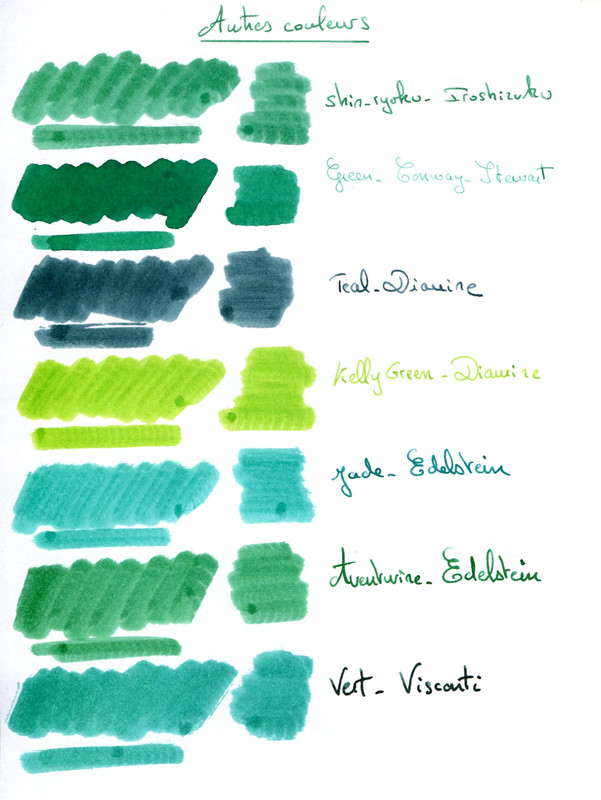 Autres couleurs
Shin-ryoku - Iroshizuku
Green - Conway - Stewart
Teal - Diamine
Kelly Green - Diamine
Jade - Edelstein
Aventurine - Edelstein
Vert - Visconti